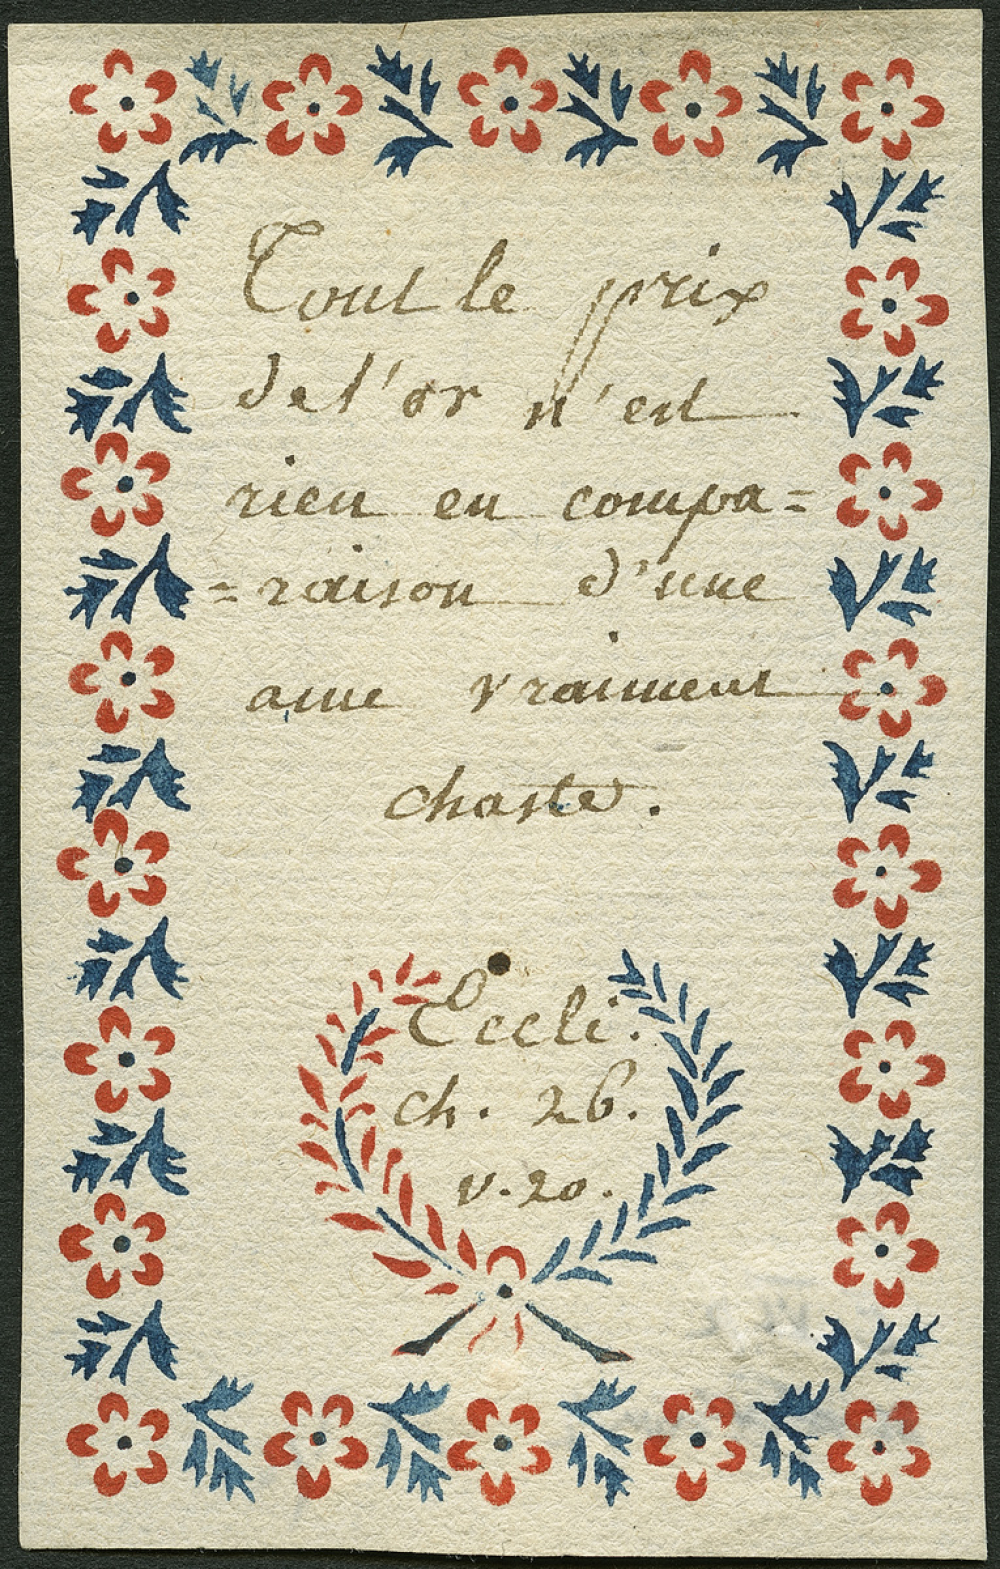 Tout le prix
de l'or n'est
rien en compa=
=raison d'une
ame vraiment
chaste.
Eccli.
ch. 26.
v. 20.